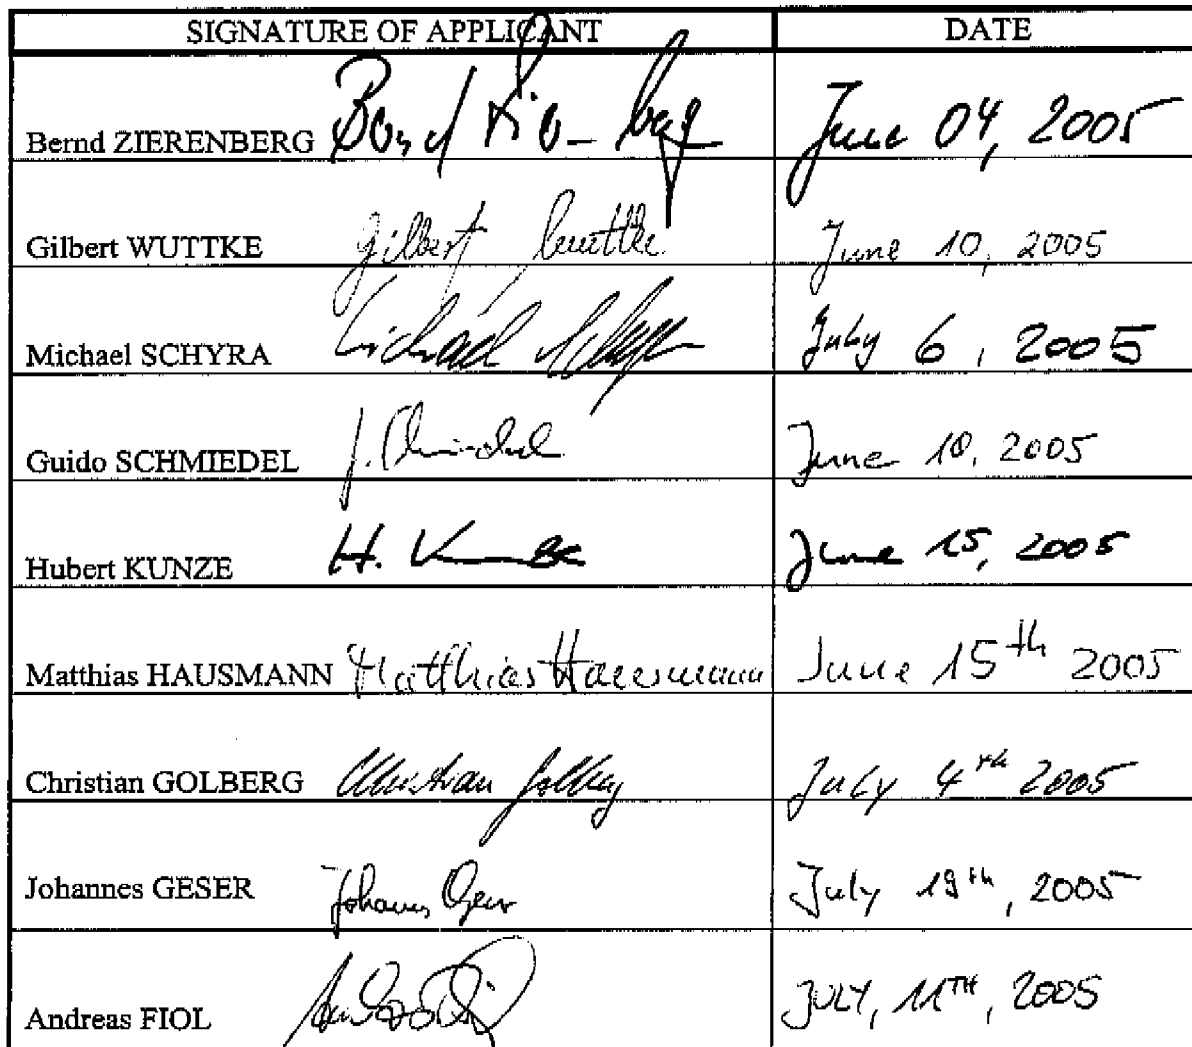 SIGNATURE OF APPLICANT DATE
Bernd ZIERENBERG Bernd June 04, 2005
Gilbert WUTTKE Gilbert Wuttke June 10, 2005
Michael SCHYRA Michael July 6, 2005
Guido SCHMIEDEL June 10, 2005
Hubert KUNZE H. Kunze June 15, 2005
Matthias HAUSMANN Matthias Hausmann June 15th 2005
Christian GOLBERG Christian Golberg July 4th 2005
Johannes GESER Johannes Geser July 19th, 2005
Andreas FIOL JULY, 11TH, 2005